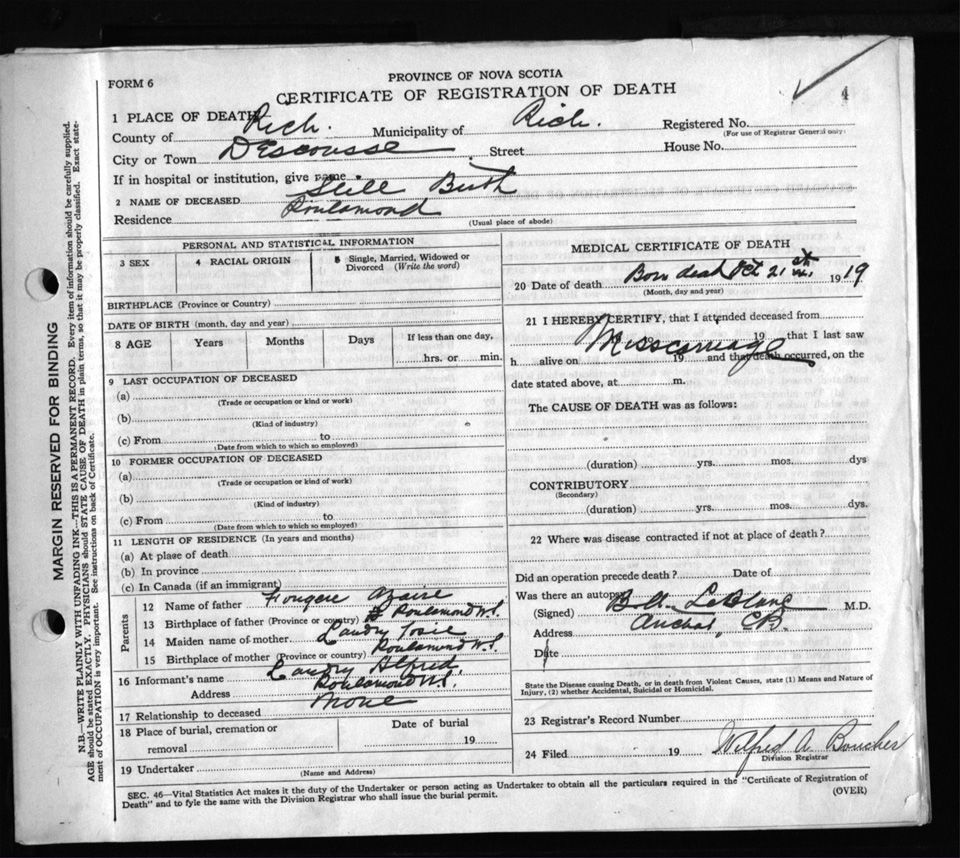 FORM 6
PROVINCE OF NOVA SCOTIA
CERTIFICATE OF REGISTRATION OF DEATH
4
1 PLACE OF DEATH
County of Rich. Municipality of Rich. Registered No.
(For use of Registrar General only)
City or Town D'Escousse Street House No.
If in hospital or institution, give name
2 NAME OF DECEASED Still Birth
Residence Poulamond
(Usual place of abode)
PERSONAL AND STATISTICAL INFORMATION
3 SEX
4 RACIAL ORIGIN
5 Single, Married, Widowed or Divorced (Write the word)
BIRTHPLACE (Province or Country)
DATE OF BIRTH (month, day and year)
8 AGE Years Months Days If less than one day,
hrs. or min.
9 LAST OCCUPATION OF DECEASED
(a)
(Trade or occupation or kind or work)
(b)
(Kind of industry)
(c) From to
(Date from which to which so employed)
10 FORMER OCCUPATION OF DECEASED
(a)
(Trade or occupation or kind of work)
(b)
(Kind of industry)
(c) From to
(Date from which to which so employed)
11 LENGTH OF RESIDENCE (In years and months)
(a) At plase of death
(b) In province
(c) In Canada (if an immigrant)
Parents
12 Name of father Fougere
13 Birthplace of father (Province or country) Poulamond N.S.
14 Maiden name of mother Landry Josie
15 Birthplace of mother (Province or country) Poulamond N.S.
16 Informant's name Landry Alfred
Address Poulamond N.S.
17 Relationship to deceased None
18 Place of burial, cremation or
removal
Date of burial
19
19 Undertaker
(Name and Address)
MEDICAL CERTIFICATE OF DEATH
20 Date of death Born dead Oct. 21 1919
(Month, day and year)
21 I HEREBY CERTIFY, that I attended deceased from
19 that I last saw
Misscarriage
h alive on 19 and that death occurred, on the
date stated above, at m.
The CAUSE OF DEATH was as follows:
(duration) yrs. mos. dys
CONTRIBUTORY
(Secondary)
(duration) yrs. mos. dys.
22 Where was disease contracted if not at place of death?
Did an operation precede death? Date of
Was there an autopsy
(Signed) LeBlanc M.D.
Address Arichat, CB.
Date
State the Disease causing Death, or in death from Violent Causes, state (1) Means and Nature of
Injury, (2) whether Accidental, Suicidal or Homicidal.
23 Registrar's Record Number
24 Filed 19 Wilfred A Boucher
Division Registrar
SEC. 46—Vital Statistics Act makes it the duty of the Undertaker or person acting as Undertaker to obtain all the particulars required in the "Certificate of Registration of
Death" and to fyle the same with the Division Registrar who shall issue the burial permit.
(OVER)
MARGIN RESERVED FOR BINDING
N.B.—WRITE PLAINLY WITH UNFADING INK—THIS IS A PERMANENT RECORD. Every item of information should be carefully supplied.
AGE should be stated EXACTLY. PHYSICIANS should STATE CAUSE OF DEATH in plain terms, so that it may be properly classified. Exact state-
ment of OCCUPATION is very important. See instructions on back of Certificate.